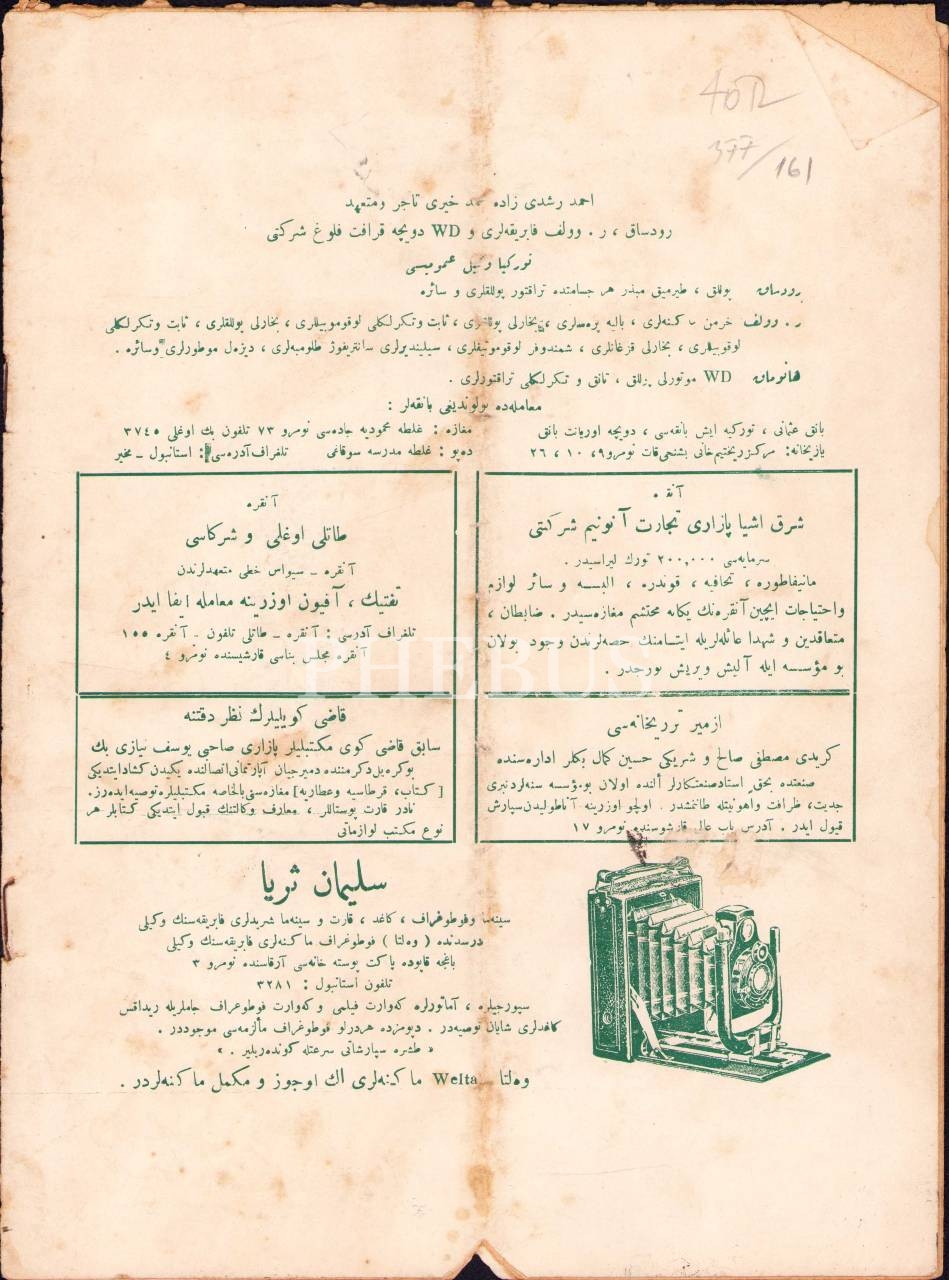 40 TL
377/161
احمد رشدی زاده محمد خیری تاجر ومتعهد
رودساق ، ر . وولف فابریقه‌لری و WD دویچه قرافت فلوغ شرکتی
تورکیا وکیل عمومیسی
رودساق پوللق ، طیرمیق مبذر هر جسامتده تراقتور پوللقلری و سائره
ر . وولف خرمن ماکنه‌لری ، بالیه پره‌سلری ، بخارلی پوللقلری ، ثابت وتکرلکلی لوقوموبیللری ، بخارلی پوللقلری ، ثابت وتکرلکلی
لوقوبیللری ، بخارلی قزغانلری ، شمندوفر لوقوموتیفلری ، سیلیندیرلری سانتریفوژ طلومبه‌لری ، دیزه‌ل موطورلری وسائره .
هانوماق WD موتورلی پوللق ، تانق و تکرلکلی تراقتورلری .
معامله‌ده بولوندیغی بانقه‌لر :
بانق عثمانی ، تورکیه ایش بانقه‌سی ، دویچه اوریانت بانق
مغازه : غلطه محمودیه جاده‌سی نومرو ٧٣ تلفون بك اوغلی ٣٧٤٥
یازیخانه: مرکز ریختیم‌خانی بشنجی‌قات نومرو ٩ ، ١٠ ، ٢٦
ده‌پو : غلطه مدرسه سوقاغی تلغراف آدره‌سی : استانبول ـ مخیر
آنقره
شرق اشیا پازاری تجارت آنونیم شرکتی
سرمایه‌سی ٢٠٠,٠٠٠ تورك لیراسیدر .
مانیفاطوره ، تحافیه ، قوندره ، البسه و سائر لوازم
واحتیاجات ایچین آنقره‌نك یکانه محتشم مغازه‌سیدر . ضابطان ،
متعاقدین و شهدا عائله‌لریله ایتامنك حصه‌لرندن وجود بولان
بو مؤسسه ایله آلیش ویریش بورجدر .
آنقره
طاتلی اوغلی و شرکاسی
آنقره ـ سیواس خطی متعهدلرندن
تفتیك ، آفیون اوزرینه معامله ایفا ایدر
تلغراف آدرسی : آنقره ـ طاتلی تلفون ـ آنقره ١٥٥
آنقره مجلس بناسی قارشیسنده نومرو ٤
PHEBUS
ازمیر ترزیخانه‌سی
کریدی مصطفی صالح و شریکی حسین کمال بکلر اداره‌سنده
صنعتده بحق استاد صنعتکارلر ألنده اولان بو مؤسسه سنه‌لردنبری
جدیت، ظرافت واهونیتله طانتمشدر . اولچو اوزرینه آناطولیدن سپارش
قبول ایدر . آدرس باب عالی قارشوسنده نومرو ١٧
قاضی کویلیلرك نظر دقتنه
سابق قاضی کوی مکتبلیلر پازاری صاحبی یوسف نیازی بك
بوکره یل دکرمننده دمیرجیان آپارتمانی اتصالنده یکیدن کشاد ایتدیکی
[ کتاب، قرطاسیه وعطاریه ] مغازه‌سنی بالخاصه مکتبلیلره توصیه ایده‌رز.
نادر قارت پوستاللر ، معارف وکالتنك قبول ایتدیکی کتابلر هر
نوع مکتب لوازماتی
سلیمان ثریا
سینه‌ما وفوطوغراف ، کاغد ، قارت و سینه‌ما شریدلری فابریقه‌سنك وکیلی
درسدنده ( وه‌لتا ) فوطوغراف ماکنه‌لری فابریقه‌سنك وکیلی
باغچه قاپوده پاکت پوسته خانه‌سی آرقاسنده نومرو ٣
تلفون استانبول : ٣٢٨١
سپورجیلره ، آماتورلره که‌وارت فیلمی و که‌وارت فوطوغراف جاملریله ریداقس
کاغدلری شایان توصیه‌در . دپومزده هردرلو فوطوغراف مالزمه‌سی موجوددر .
« طشره سپارشاتی سرعتله کوندریلیر . »
وه‌لتا Welta ماکنه‌لری اك اوجوز و مکمل ماکنه‌لردر .